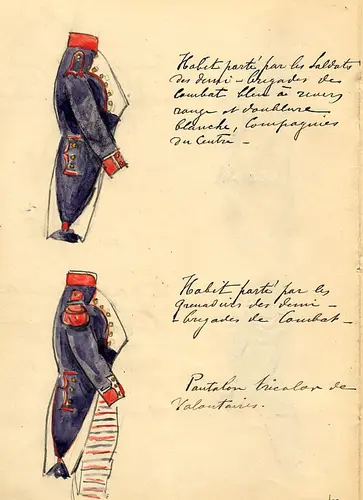 Habit porté par les Soldats
des demi-brigades de
Combat bleu à revers
rouge et doublure
blanche, Compagnies
du Centre -
Habit porté par les
grenadiers des demi-
-brigades de Combat -
Pantalon tricolor de
Volontaires.